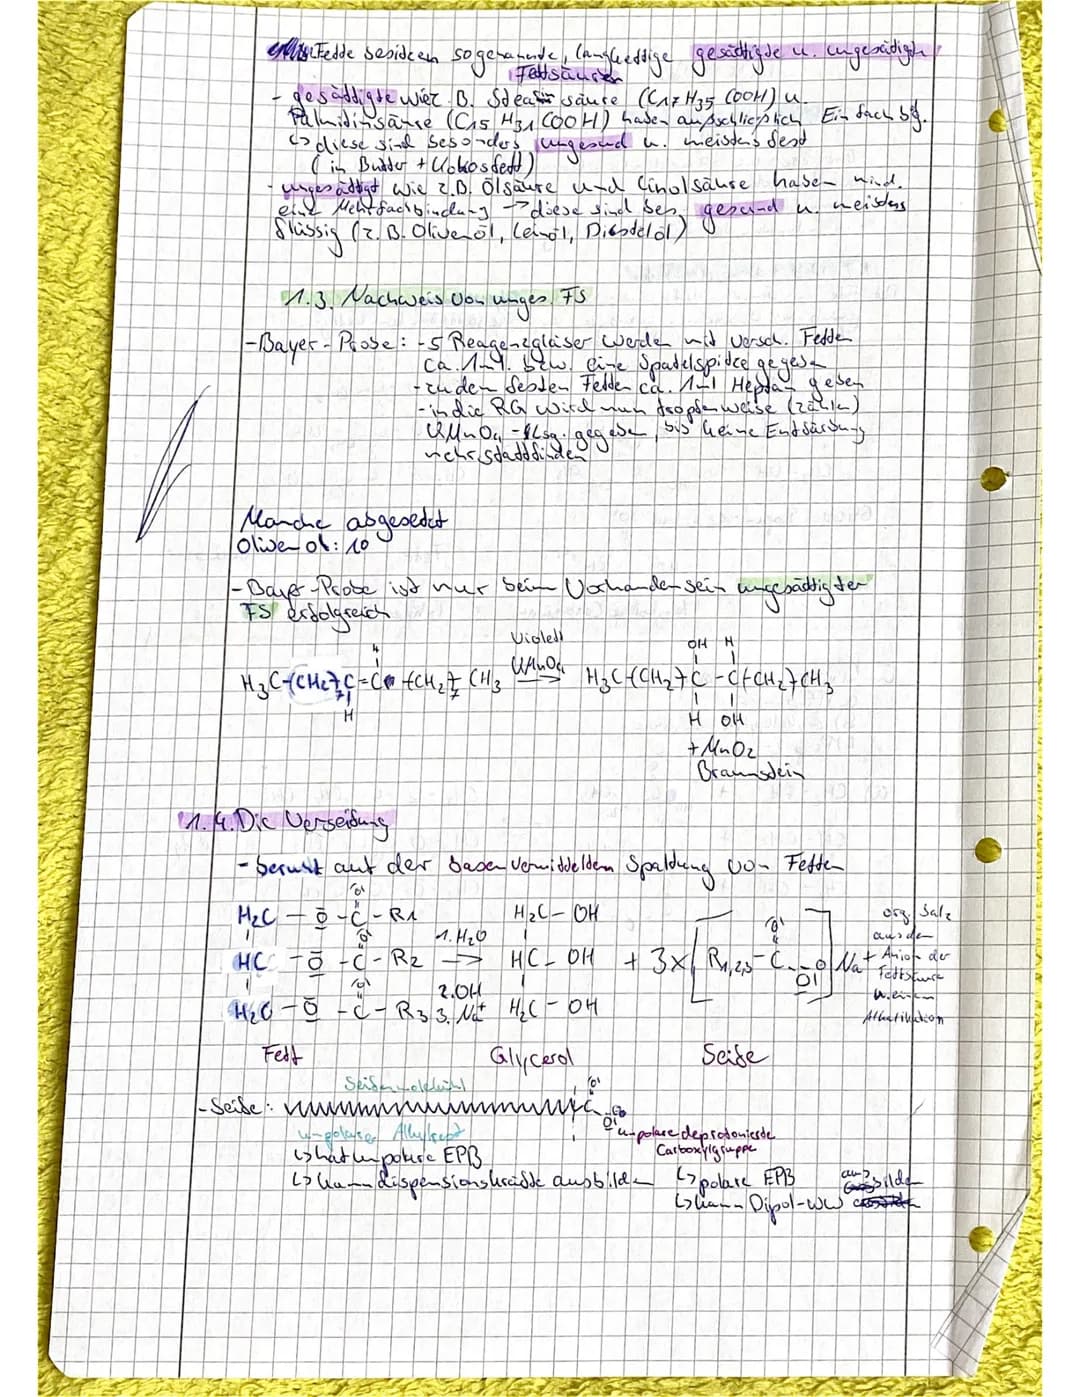 Fette besitzen sogenannte, langkettige gesättigte u. ungesättigte
Fettsäuren
- gesättigte wie z.B. Stearinsäure (C17H35COOH) u.
Palmitinsäure (C15H31COOH) haben außschließlich Einfachbdg.
↳ diese sind besonders ungesund u. meistens fest
(in Butter + Kokosfett)
- ungesättigt wie z.B. Ölsäure und Linolsäure haben mind.
eine Mehrfachbindung → diese sind bes. gesund u. meistens
flüssig (z.B. Olivenöl, Leinöl, Distelöl)
1.3. Nachweis von unges. FS
- Bayer-Probe: - 5 Reagenzgläser werden mit versch. Fetten
ca. 1ml. bzw. eine Spatelspitze gegeben
- zu den festen Fetten ca. 1ml Heptan geben
- in die RG wird nun tropfenweise (zählen)
KMnO4 - Lsg. gegeben, bis keine Entfärbung
mehr stattfinden
Manche abgesetzt
Olivenöl: 10
- Bayer-Probe ist nur beim Vorhandensein ungesättigter
FS erfolgreich
Violett
H OH H
H3C-(CH2)7-C=C-(CH2)7-CH3 KMnO4 → H3C-(CH2)7-C-C-(CH2)7-CH3
H H OH
+ MnO2
Braunstein
1.4. Die Verseifung
- beruht auf der basenvermittelten Spaltung von Fetten
H2C - O - C - R1 H2C - OH org. Salz
aus dem
HC - O - C - R2 1. H2O → HC - OH + 3x [R1,2,3 - C - O] Na+ Anion der
Fettsäure
2. OH
H2C - O - C - R3 3. Na+ H2C - OH
u. einem
Alkalikation
Fett Glycerol Seife
Seifenmolekül
- Seife:
unpolarer Alkylrest
polare deprotonierte
Carboxylgruppe
↳ hat unpolare EPB
↳ kann dispensionskräfte ausbilden
↳ polare EPB
↳ kann Dipol-WW ausbilden